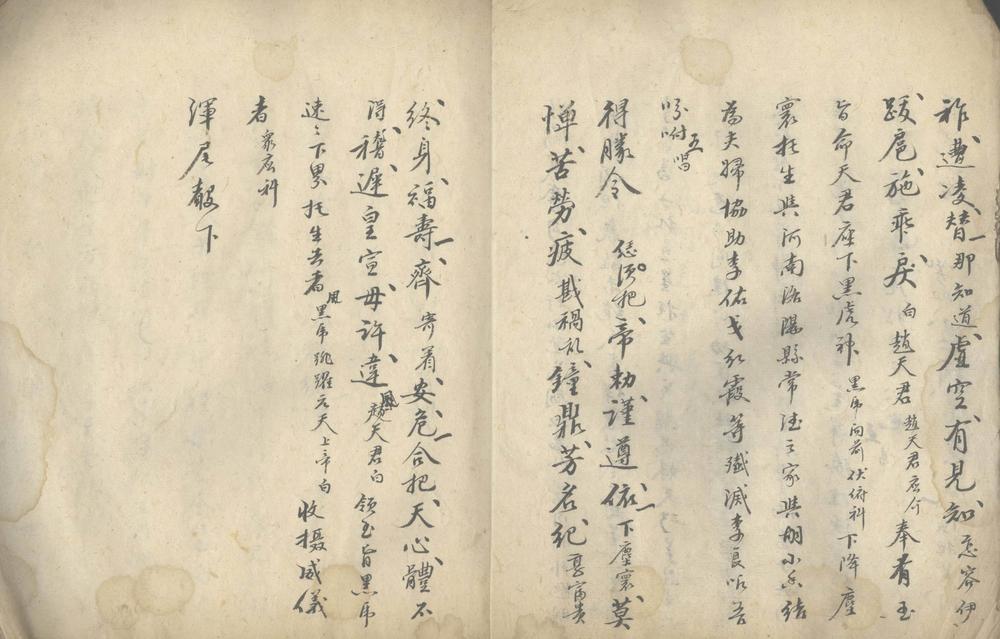 祚遭凌替那知道虚空有見知怎容伊
跋扈施乖戾白趙天君趙天君应介奉有玉
旨命天君座下黑虎神黑虎向前伏俯科下降塵
寰托生與河南洛陽縣常德之家與胡小香結
為夫婦協助李佑戈紅霞等殲滅李良听吾
吩咐五唱
得勝令恁須把帝勅謹遵依下塵寰莫
憚苦勞疲戡禍乱鐘鼎芳名紀享富貴
終身福壽齊寄着安危合把天心體不
得稽遲皇宣毋許違趙天君白領玉旨黑虎
速々下界托生去者風黑虎跳躍元天上帝白收摄威儀
者衆应科
渾尾殽下